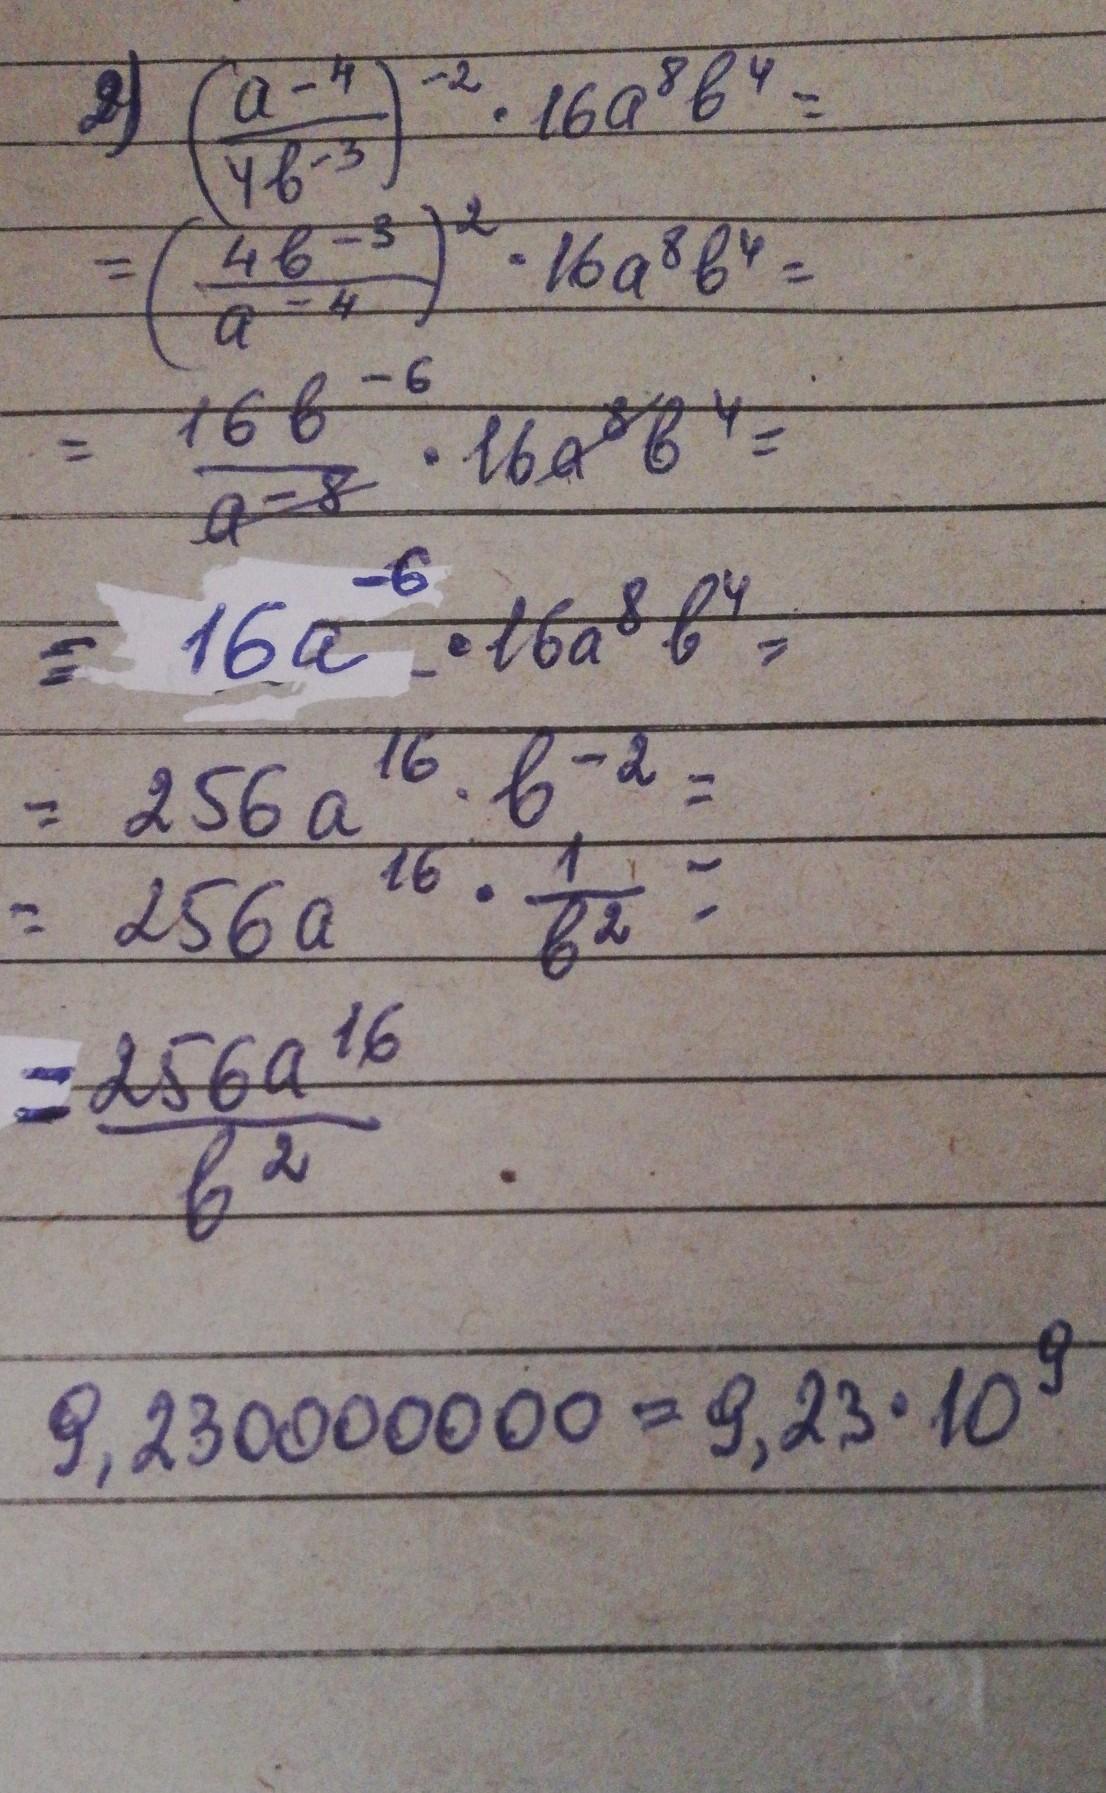 2) (a⁻⁴/4b⁻³)⁻² · 16a⁸b⁴ =
= (4b⁻³/a⁻⁴)² · 16a⁸b⁴ =
= 16b⁻⁶/a⁻⁸ · 16a⁸b⁴ =
= 16a⁻⁶ · 16a⁸b⁴ =
= 256a¹⁶ · b⁻² =
= 256a¹⁶ · 1/b² =
= 256a¹⁶/b²
9,230000000 = 9,23 · 10⁹